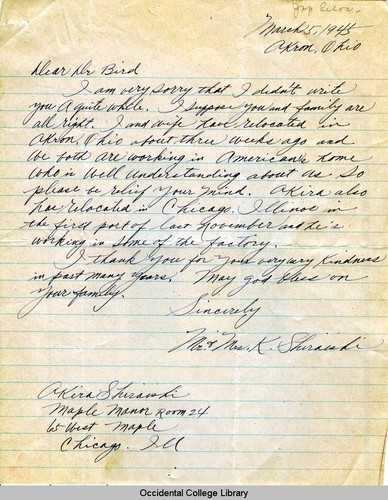 March 5, 1945
Akron, Ohio
Dear Dr Bird
I am very sorry that I didn't write
you a quite while. I suppose you and family are
all right. I and wife have relocated in
Akron, Ohio about three weeks ago and
we both are working in American's home
who is well understanding about us so
please be relief your mind. Akira also
has relocated in Chicago. Illinois in
the first part of last November and he's
working in some of the factory.
I thank you for your very kindness
in past many years. May god bless on
your family.
Sincerely
Mr. & Mrs. K. Shiraishi
Akira Shiraishi
Maple Manor Room 24
West Maple
Chicago. Ill
Occidental College Library